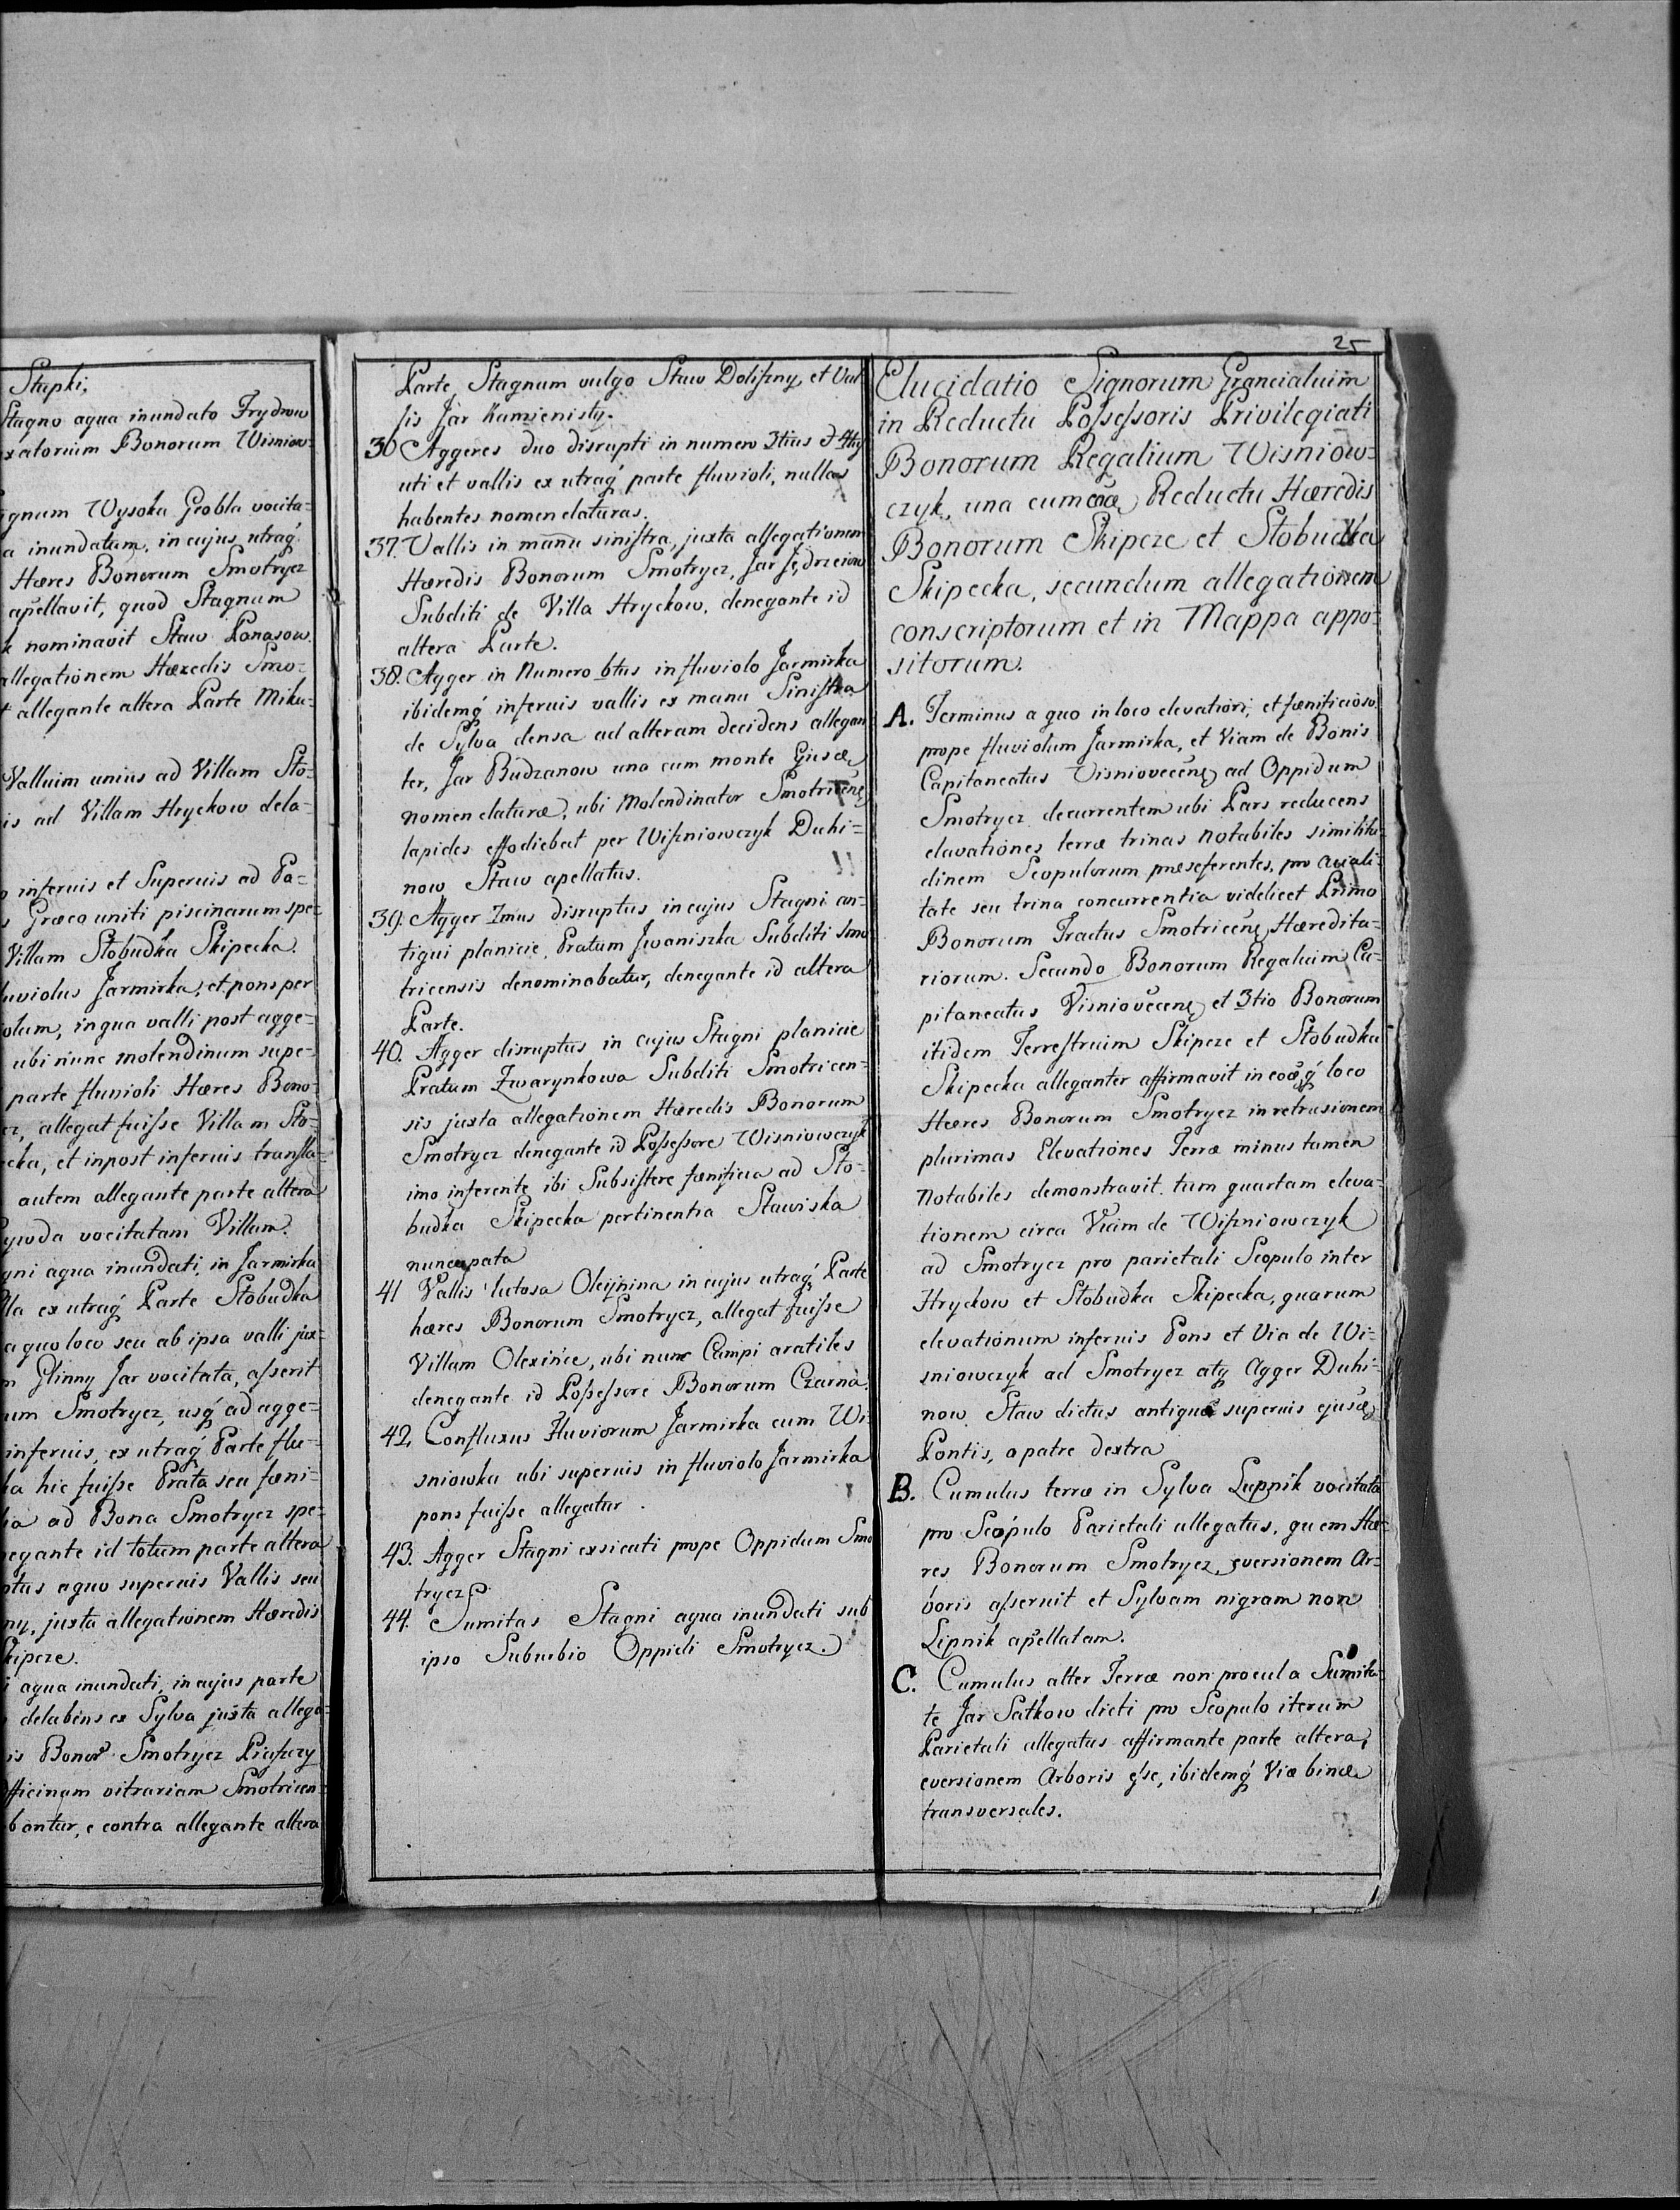 Stupki,
Stagno aqua inundato Frydrow
xatorium Bonorum Wisniow=
gnum Wysoka Grobla vocita=
a inundatum, in cujus utraq́
Hæres Bonorum Smotrycz
apellavit, quod Stagnum
nominavit Staw Panasow.
allegationem Hæredis Smo=
allegante altera Parte Miku=
Valluim unius ad Villam Sto=
is ad Villam Hryckow dela=
inferuis et Superuis ad Pa=
s Græco uniti piscinarum spe=
Villam Stobudka Skipecka.
luviolus Jarmirka, et pons per
olum, in qua valli post agge=
ubi nunc molendinum supe=
parte fluvioli Hæres Bono=
cz, allegat fuiſse Villam Sto=
cka, et in post inferuis transla=
autem allegante parte altera
ywda vocitatam Villam.
gni aqua inundati, in Jarmirka
lla ex utraq́ Parte Stobudka
a quo loco seu ab ipsa valli jux=
m Glinny Jar vocitata, aſserit
um Smotrycz, usq́ ad agge=
inferuis, ex utraq́ Parte flu=
ka hic fuiſse Prata seu fæni=
ia ad Bona Smotrycz spe=
negante id totum parte altera
ptus a quo superuis Vallis seu
ny, juxta allegationem Hæredis
kipcze.
i aqua inundati, in cujus parte
delabens ex Sylva juxta allega=
is Bonor Smotrycz
fficinam vitrariam Smotricen=
bantur, e contra allegante altera
Parte, Stagnum vulgo Staw Doliſzny et Val=
lis Jar Kamienisty.
36 Aggeres duo disrupti in numero 3tius et 4tus
uti et vallis ex utraq́ parte fluvioli, nullas
habentes nomenclaturas.
37. Vallis in manu siniſtra, juxta allegationem
Hæredis Bonorum Smotrycz, Jar Jędrzeiow
Subditi de Villa Hryckow, denegante id
altera Parte.
38. Agger in Numero 6tus in fluviolo Jarmirka
ibidemq́ inferuis vallis ex manu Siniſtra
de Sylva densa ad alteram decidens allegan
ter, Jar Budzanow una cum monte Ejusdē
nomenclaturæ, ubi Molendinator Smotricēnę
lapides effodiebat per Wiſzniowczyk Duhi=
now Staw apellatus.
39. Agger 1mus disruptus in cujus Stagni an=
tiqui planicie, Pratum Jwaniszka Subditi Smo
tricensis denominabatur, denegante id altera
Parte.
40. Agger disruptus in cujus Stagni planicie
Pratum Zwarynkowa Subditi Smotricen=
sis juxta allegationem Hæredis Bonorum
Smotrycz denegante id Poſseſsore Wisniowczyk
imo inferente ibi Subsiſtere fænificia ad Sto=
budka Skipecka pertinentia Stawiska
nuncupata
41 Vallis lutosa Oleynina in cujus utraq́ Parte
hæres Bonorum Smotrycz, allegat fuiſse
Villam Olexińce, ubi nunc Campi aratiles
denegante id Poſseſsore Bonorum Czarna.
42. Confluxus Fluviorum Jarmirka cum Wi=
sniowka ubi superuis in fluviolo Jarmirka
pons fuiſse allegatur.
43. Agger Stagni exsicati prope Oppidum Smo
trycz
44. Sumitas Stagni aqua inundati sub
ipso Suburbio Oppidi Smotrycz.
25
Elucidatio Signorum Grancialuim
in Reductu Poſseſsoris Privilegiati
Bonorum Regalium Wisniow=
czyk, una cum Reductu Hæredis
Bonorum Skipcze et Stobudka
Skipecka, secundum allegationem
conscriptorum et in Mappa appo=
sitorum.
A. Terminus a quo in loco elevatiori, et fænificioso,
prope fluviolum Jarmirka, et Viam de Bonis
Capitaneatus Visniovecēnę ad Oppidum
Smotrycz decurrentem ubi Pars reducens
elavationes terræ trinas notabiles similitu=
dinem Scopulorum præseferentes, pro Aciali=
tate seu trina concurrentia videlicet Primo
Bonorum Tractus Smotricēnę Hæredita=
riorum. Secundo Bonorum Regaluim Ca=
pitaneatus Visniovecēnę et 3tio Bonorum
itidem Terreſtruim Skipcze et Stobudka
Skipecka alleganter affirmavit in eodēq́ loco
Hæres Bonorum Smotrycz in retrusionem
plurimas Elevationes Terræ minus tamen
notabiles demonstravit. tum quartam eleva=
tionem circa Viam de Wiſzniowczyk
ad Smotrycz pro parietali Scopulo inter
Hryckow et Stobudka Skipecka, quarum
elevationum inferuis Pons et Via de Wi=
sniowczyk ad Smotrycz atq Agger Duhi=
now Staw dictus antiquus superuis ejusdē
Pontis, a patre dextra
B. Cumulus terræ in Sylva Lipnik vocitata
pro Scopulo Parietali allegatus, quem Hæ=
res Bonorum Smotrycz, eversionem Ar=
boris aſseruit et Sylvam nigram non
Lipnik apellatam.
C. Cumulus alter Terræ non procul a Sumita=
te Jar Satkow dicti pro Scopulo iterum
Parietali allegatus affirmante parte altera,
eversionem Arboris eſse, ibidemq́ Viæ binæ
transversales.